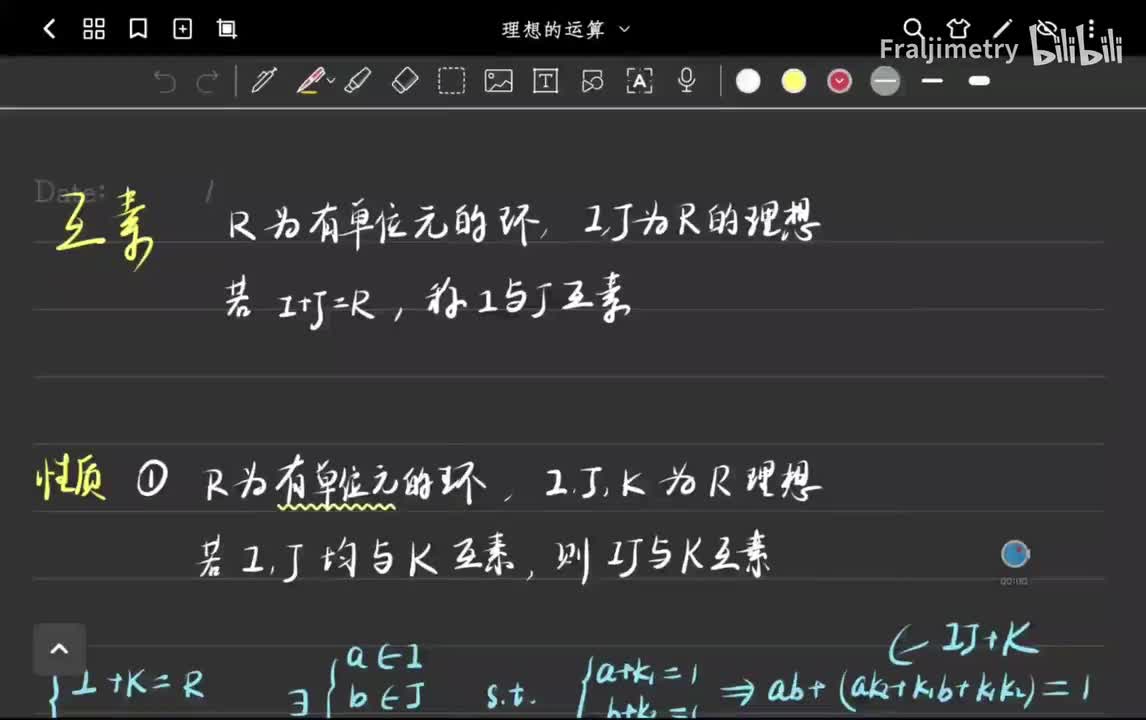 理想的运算
Fraljimetry bilibili
Date: /
互素 R为有单位元的环, I,J为R的理想
若 I+J=R, 称I与J互素
性质 ① R为有单位元的环, I,J,K为R理想
若I,J均与K互素, 则IJ与K互素
00:00
∈ IJ+K
{ I+K=R ∃ { a∈I
b∈J s.t. { a+k₁=1
b+k₂=1 ⇒ ab+(ak₂+k₁b+k₁k₂)=1